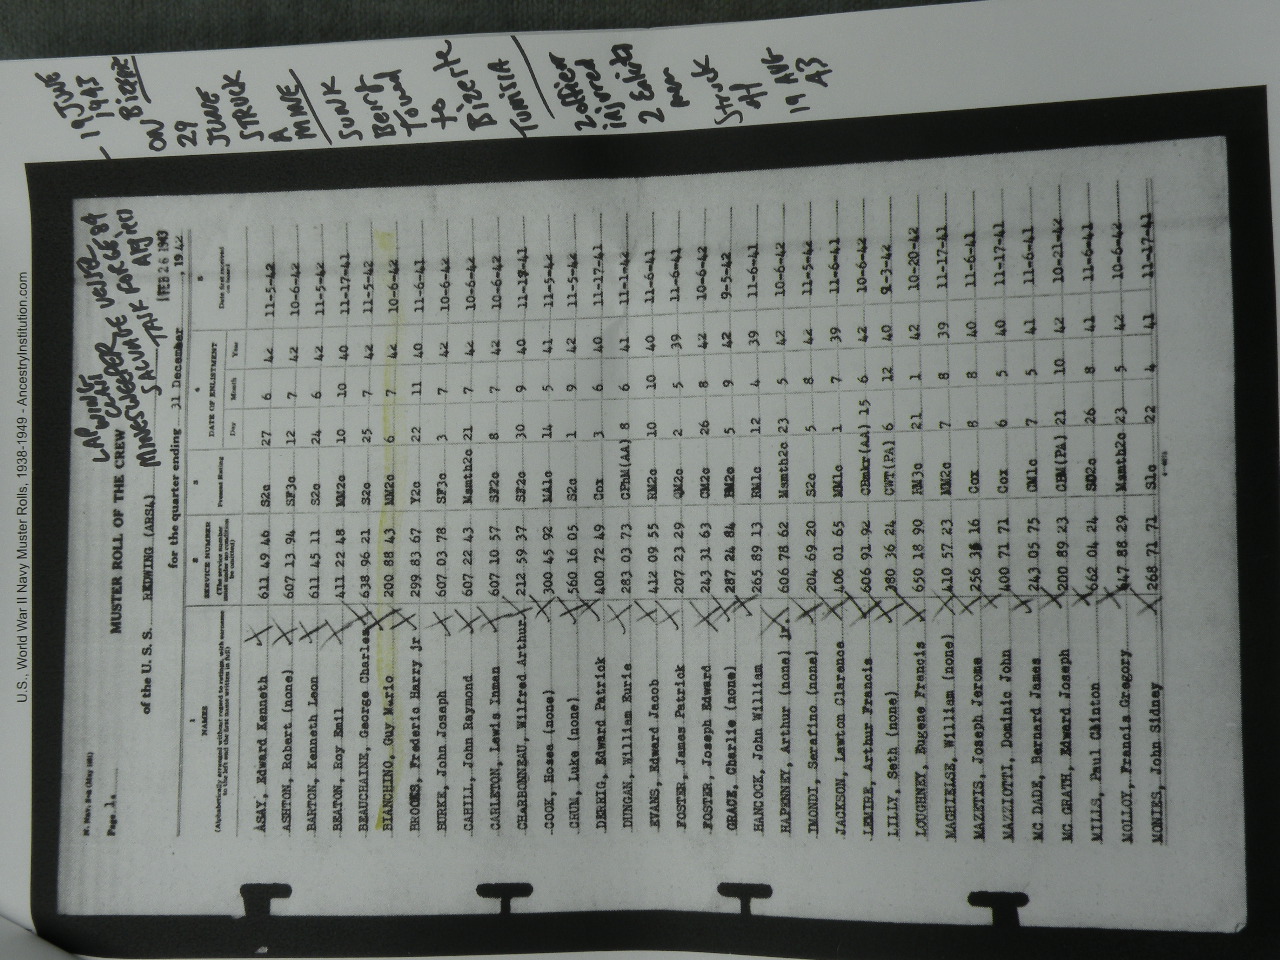 U.S., World War II Navy Muster Rolls, 1938-1949 - AncestryInstitution.com
19 JUNE
1943
Bizerte
ON
29
JUNE
STRUCK
A
MINE
SUNK
Being
Towed
to
Bizerte
TUNISIA
2 officer
injured
2 Enlisted
men
Struck
off
19 AUG
43
LAPWING
CLASS
MINESWEEPER
SALVAGE
TASK FORCE 84
Page 1
MUSTER ROLL OF THE CREW
of the U. S. S. REDWING (ARS4)
for the quarter ending 31 December, 1942
FEB 26 1943
1 NAMES
(Alphabetically arranged without regard to ratings, with surnames to the left and the first name written in full)
2 SERVICE NUMBER
(The service number must under no condition be omitted)
3 Present Rating
4 DATE OF ENLISTMENT
Day Month Year
5 Date first received on board
ASAY, Edward Kenneth 611 49 46 S2c 27 6 42 11-5-42
ASHTON, Robert (none) 607 13 94 SF3c 12 7 42 10-6-42
BARTON, Kenneth Leon 611 45 11 S2c 24 6 42 11-5-42
BEATON, Roy Emil 411 22 48 MM2c 10 10 40 11-17-41
BEAUCHAINE, George Charles 638 96 21 S2c 25 7 42 11-5-42
BIANCHINO, Guy Mario 200 88 43 MM2c 6 7 42 10-6-42
BROOKS, Frederic Harry jr 299 83 67 Y2c 22 11 40 11-6-41
BURKE, John Joseph 607 03 78 SF3c 3 7 42 10-6-42
CAHILL, John Raymond 607 22 43 Msmth2c 21 7 42 10-6-42
CARLETON, Lewis Inman 607 10 57 SF2c 8 7 42 10-6-42
CHARBONNEAU, Wilfred Arthur 212 59 37 SF2c 30 9 40 11-18-41
COOK, Hosea (none) 300 45 92 MA1c 14 5 41 11-5-42
CRUM, Luke (none) 560 16 05 S2c 1 9 42 11-5-42
DERRIG, Edward Patrick 400 72 49 Cox 3 6 40 11-17-41
DUNGAN, William Eurie 283 03 73 CPhM(AA) 8 6 41 11-1-42
EVANS, Edward Jacob 412 09 55 RM2c 10 10 40 11-6-41
FOSTER, James Patrick 207 23 29 QM2c 2 5 39 11-6-41
FOSTER, Joseph Edward 243 31 63 CM2c 26 8 42 10-6-42
GRACE, Charlie (none) 287 24 84 BM2c 5 9 42 9-5-42
HANCOCK, John William 265 89 13 BM1c 12 4 39 11-6-41
HAPENNEY, Arthur (none) jr. 606 78 62 Msmth2c 23 5 42 10-6-42
IMONDI, Serafino (none) 204 69 20 S2c 5 8 42 11-5-42
JACKSON, Lawton Clarence 406 01 65 MM1c 1 7 39 11-6-41
LEMIRE, Arthur Francis 606 91 92 CBmkr(AA) 15 6 42 10-6-42
LILLY, Seth (none) 380 36 24 CWT(PA) 6 12 40 9-3-42
LOUGHNEY, Eugene Francis 650 18 90 RM3c 21 1 42 10-20-42
MAGHIELSE, William (none) 410 57 23 MM2c 7 8 39 11-17-41
MAZETIS, Joseph Jerome 256 36 16 Cox 8 8 40 11-6-41
MAZIOTTI, Dominic John 400 71 71 Cox 6 5 40 11-17-41
MC DADE, Bernard James 243 05 75 GM1c 7 5 41 11-6-41
MC GRATH, Edward Joseph 200 89 23 CBM(PA) 21 10 42 10-21-42
MILLS, Paul Clinton 662 04 24 SD2c 26 8 41 11-6-41
MOLLOY, Francis Gregory 647 88 29 Msmth2c 23 5 42 10-6-42
MONIES, John Sidney 268 71 71 S1c 22 4 41 11-17-41